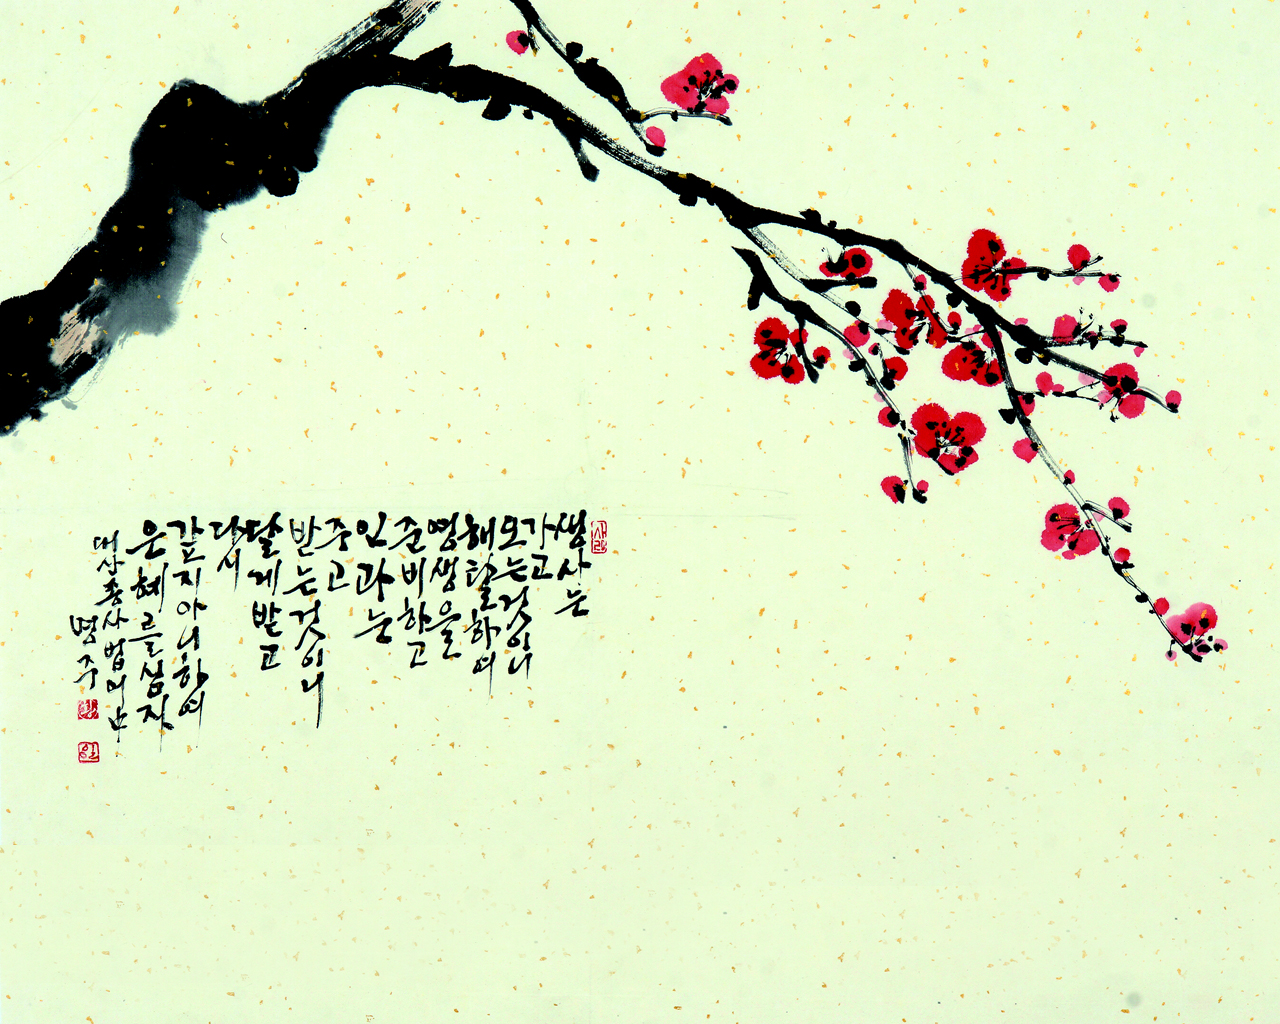 사랑
생사는
가고
오는것이니
해탈하여
영생을
준비하고
인과는
주고
받는것이니
달게받고
다시
갚지아니하여
은혜를심자
대산종사법어中
명주